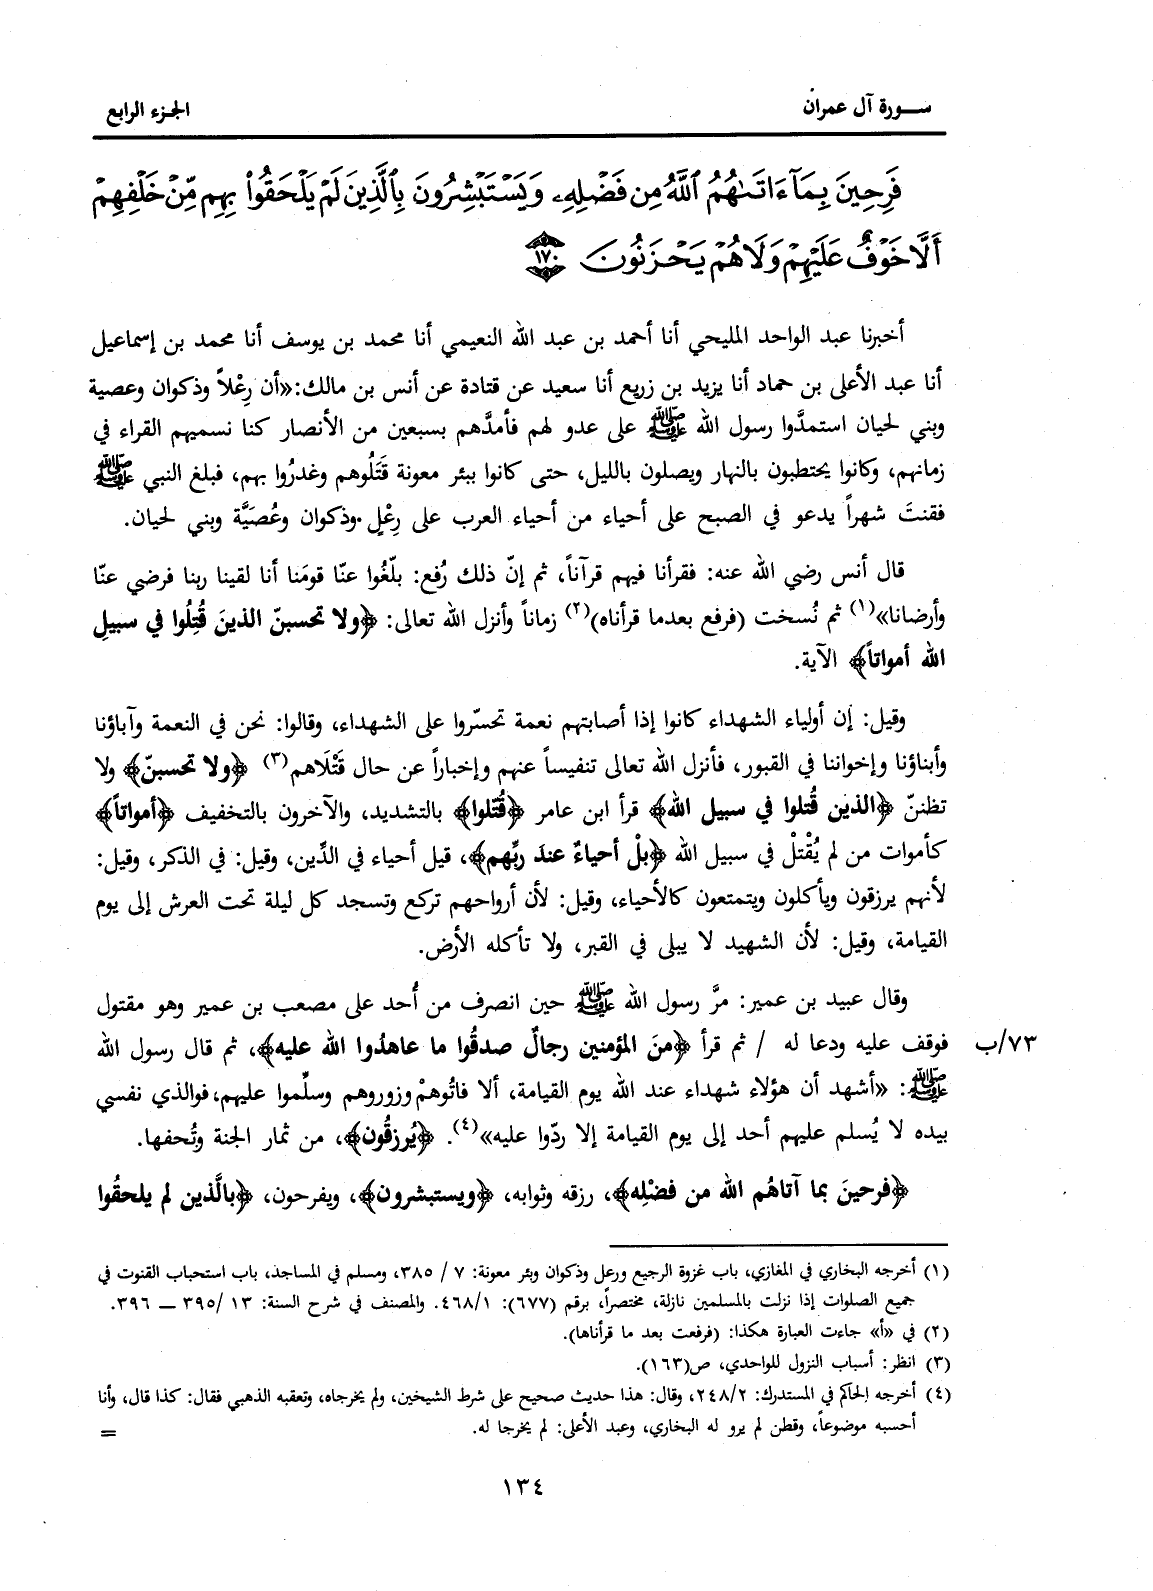 سـورة آل عمران
الجزء الرابع
فَرِحِينَ بِمَآ ءَاتَىٰهُمُ ٱللَّهُ مِن فَضْلِهِۦ وَيَسْتَبْشِرُونَ بِٱلَّذِينَ لَمْ يَلْحَقُوا۟ بِهِم مِّنْ خَلْفِهِمْ
أَلَّا خَوْفٌ عَلَيْهِمْ وَلَا هُمْ يَحْزَنُونَ ١٧٠
أخبرنا عبد الواحد المليحي أنا أحمد بن عبد الله النعيمي أنا محمد بن يوسف أنا محمد بن إسماعيل
أنا عبد الأعلى بن حماد أنا يزيد بن زريع أنا سعيد عن قتادة عن أنس بن مالك: «أن رِعْلاً وذكوان وعصية
وبني لحيان استمدَّوا رسول الله ﷺ على عدو لهم فأمدَّهم بسبعين من الأنصار كنا نسميهم القراء في
زمانهم، وكانوا يحتطبون بالنهار ويصلون بالليل، حتى كانوا ببئر معونة قَتَلُوهم وغدرُوا بهم، فبلغ النبي ﷺ
فقنتَ شهراً يدعو في الصبح على أحياء من أحياء العرب على رِعْلٍ وذكوان وعُصَيَّة وبني لحيان.
قال أنس رضي الله عنه: فقرأنا فيهم قرآناً، ثم إنّ ذلك رُفع: بلّغُوا عنّا قومَنا أنا لقينا ربنا فرضي عنّا
وأرضانا»(١) ثم نُسخت (فرفع بعدما قرأناه)(٢) زماناً وأنزل الله تعالى: ﴿ولا تحسبنّ الذينَ قُتِلُوا في سبيلِ
الله أمواتاً﴾ الآية.
وقيل: إن أولياء الشهداء كانوا إذا أصابتهم نعمة تحسّروا على الشهداء، وقالوا: نحن في النعمة وآباؤنا
وأبناؤنا وإخواننا في القبور، فأنزل الله تعالى تنفيساً عنهم وإخباراً عن حال قَتْلَاهم(٣) ﴿ولا تحسبنّ﴾ ولا
تظننّ ﴿الذين قُتلوا في سبيل الله﴾ قرأ ابن عامر ﴿قُتّلوا﴾ بالتشديد، والآخرون بالتخفيف ﴿أمواتاً﴾
كأموات من لم يُقْتلْ في سبيل الله ﴿بلْ أحياءٌ عندَ ربِّهم﴾، قيل أحياء في الدِّين، وقيل: في الذكر، وقيل:
لأنهم يرزقون ويأكلون ويتمتعون كالأحياء، وقيل: لأن أرواحهم تركع وتسجد كل ليلة تحت العرش إلى يوم
القيامة، وقيل: لأن الشهيد لا يبلى في القبر، ولا تأكله الأرض.
وقال عبيد بن عمير: مرَّ رسول الله ﷺ حين انصرف من أُحد على مصعب بن عمير وهو مقتول
فوقف عليه ودعا له / ثم قرأ ﴿منَ المؤمنين رجالٌ صدقُوا ما عاهدُوا الله عليه﴾، ثم قال رسول الله
٧٣/ب
ﷺ: «أشهد أن هؤلاء شهداء عند الله يوم القيامة، ألا فاتُوهمْ وزوروهم وسلِّموا عليهم، فوالذي نفسي
بيده لا يُسلم عليهم أحد إلى يوم القيامة إلا ردّوا عليه»(٤). ﴿يُرزقُون﴾، من ثمار الجنة وتُحفها.
﴿فرحينَ بما آتاهُم الله من فضْلِه﴾، رزقه وثوابه، ﴿ويستبشرون﴾، ويفرحون، ﴿بالَّذين لم يلحقُوا
(١) أخرجه البخاري في المغازي، باب غزوة الرجيع ورعل وذكوان وبئر معونة: ٧ / ٣٨٥، ومسلم في المساجد، باب استحباب القنوت في
جميع الصلوات إذا نزلت بالمسلمين نازلة، مختصراً، برقم (٦٧٧): ٤٦٨/١. والمصنف في شرح السنة: ١٣ /٣٩٥ — ٣٩٦.
(٢) في «أ» جاءت العبارة هكذا: (فرفعت بعد ما قرأناها).
(٣) انظر: أسباب النزول للواحدي، ص(١٦٣).
(٤) أخرجه الحاكم في المستدرك: ٢٤٨/٢، وقال: هذا حديث صحيح على شرط الشيخين، ولم يخرجاه، وتعقبه الذهبي فقال: كذا قال، وأنا
أحسبه موضوعاً، وقطن لم يرو له البخاري، وعبد الأعلى: لم يخرجا له.
=
١٣٤